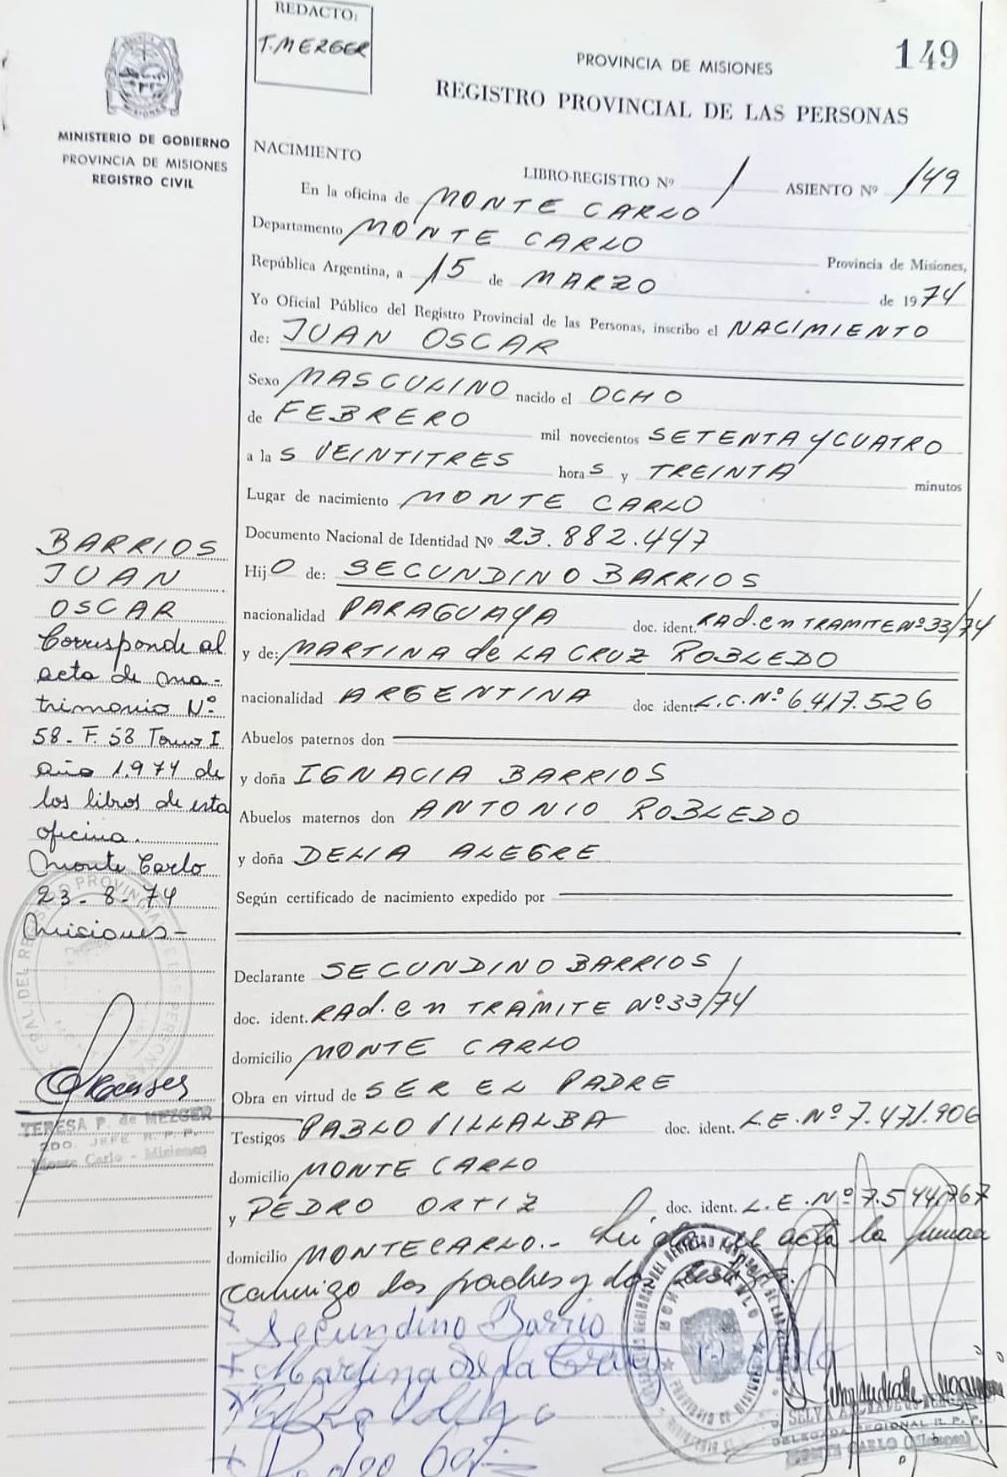 REDACTO:
T. MEZGER
149
PROVINCIA DE MISIONES
REGISTRO PROVINCIAL DE LAS PERSONAS
MINISTERIO DE GOBIERNO
PROVINCIA DE MISIONES
REGISTRO CIVIL
NACIMIENTO
LIBRO-REGISTRO Nº 1 ASIENTO Nº 149
En la oficina de MONTE CARLO
Departamento MONTE CARLO Provincia de Misiones,
República Argentina, a 15 de MARZO de 1974
Yo Oficial Público del Registro Provincial de las Personas, inscribo el NACIMIENTO
de: JUAN OSCAR
Sexo MASCULINO nacido el OCHO
de FEBRERO mil novecientos SETENTA Y CUATRO
a la S VEINTITRES hora S y TREINTA minutos
Lugar de nacimiento MONTE CARLO
Documento Nacional de Identidad Nº 23.882.447
Hij O de: SECUNDINO BARRIOS
nacionalidad PARAGUAYA doc. ident. RAd. en TRAMITE Nº 33/74
y de: MARTINA de LA CRUZ ROBLEDO
nacionalidad ARGENTINA doc ident. L.C. Nº 6.417.526
Abuelos paternos don
y doña IGNACIA BARRIOS
Abuelos maternos don ANTONIO ROBLEDO
y doña DELIA ALEGRE
Según certificado de nacimiento expedido por
Declarante SECUNDINO BARRIOS
doc. ident. RAd. en TRAMITE Nº 33/74
domicilio MONTE CARLO
Obra en virtud de SER EL PADRE
Testigos PABLO VILLALBA doc. ident. L.E. Nº 7.471.906
domicilio MONTE CARLO
y PEDRO ORTIZ doc. ident. L.E. Nº 7.544.767
domicilio MONTECARLO.- Leida el acta la firman
conmigo los padres y los testigos.
Secundino Barrio
Martina de la Cruz
Pedro
BARRIOS
JUAN
OSCAR
Corresponde al
acta de ma-
trimonio Nº
58- F. 58 Tomo I
año 1.974 de
los libros de esta
oficina.
Monte Carlo
23-8-74
Misiones-
TERESA P. de MEZGER
2DO. JEFE R. P. P.
Monte Carlo - Misiones
DELEGADA REGIONAL R. P. P.
MONTE CARLO (Misiones)